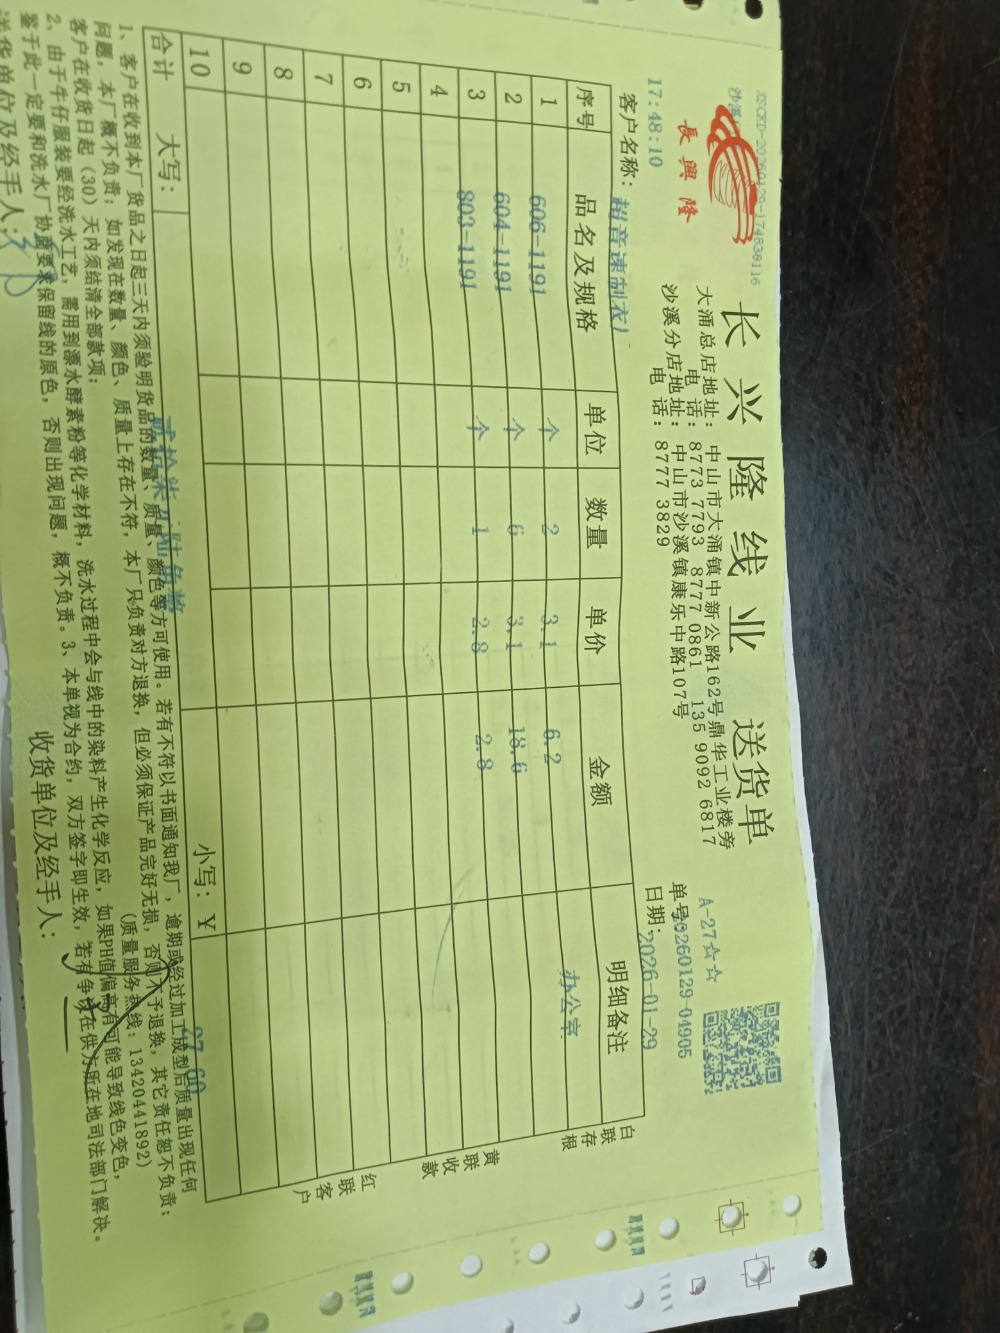 XSCKD-20260129-174838116
沙溪
長興隆
17:48:10
长兴隆线业 送货单
大涌总店地址：中山市大涌镇中新公路162号鼎华工业楼旁
电 话：8773 7793 8777 0861 135 9092 6817
沙溪分店地址：中山市沙溪镇康乐中路107号
电 话：8777 3829
A-27☆☆
单号:20260129-04905
日期:2026-01-29
客户名称：超音速制衣厂
序号 品名及规格 单位 数量 单价 金额 明细备注
1 606-1191 个 2 3.1 6.2 办公室
2 604-1191 个 6 3.1 18.6
3 803-1191 个 1 2.8 2.8
4
5
6
7
8
9
10
合计 大写： 小写：￥
白联存根
黄联收款
红联客户
1、客户在收到本厂货品之日起三天内须验明货品的数量、质量、颜色等方可使用。若有不符以书面通知我厂，逾期或经过加工成型后质量出现任何
问题，本厂概不负责；如发现在数量、颜色、质量上存在不符，本厂只负责对方退换，但必须保证产品完好无损，否则不予退换，其它责任恕不负责；
客户在收货日起（30）天内须结清全部款项； （质量服务热线：13420441892）
2、由于牛仔服装要经洗水工艺，需用到漂水酵素粉等化学材料，洗水过程中会与线中的染料产生化学反应，如果PH值偏高有可能导致线色变色，
鉴于此一定要和洗水厂协商要求保留线的原色，否则出现问题，概不负责。3、本单视为合约，双方签字即生效，若有争议在供方所在地司法部门解决。
送货单位及经手人： 收货单位及经手人：